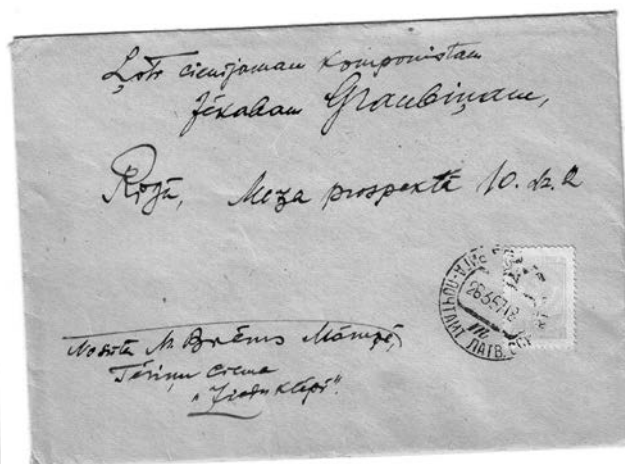 Ļoti cienījamam komponistam
Jēkabam Graubiņam,
Rīgā, Meža prospektā 10. dz. 2
ЛАТВ. ССР
26 5 57 18
Nosūta M. Brēms Mārupē,
Tēriņu ciema